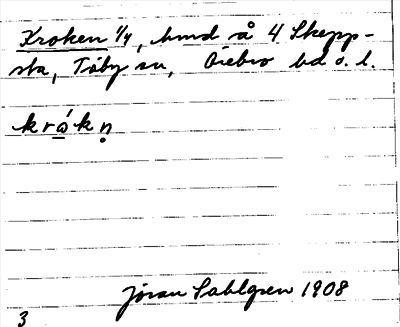 Kroken 1/4, hmd å 4 Skepp-
sta, Täby sn, Örebro hd o. l.
krọ́kn̥
Jöran Sahlgren 1908
3